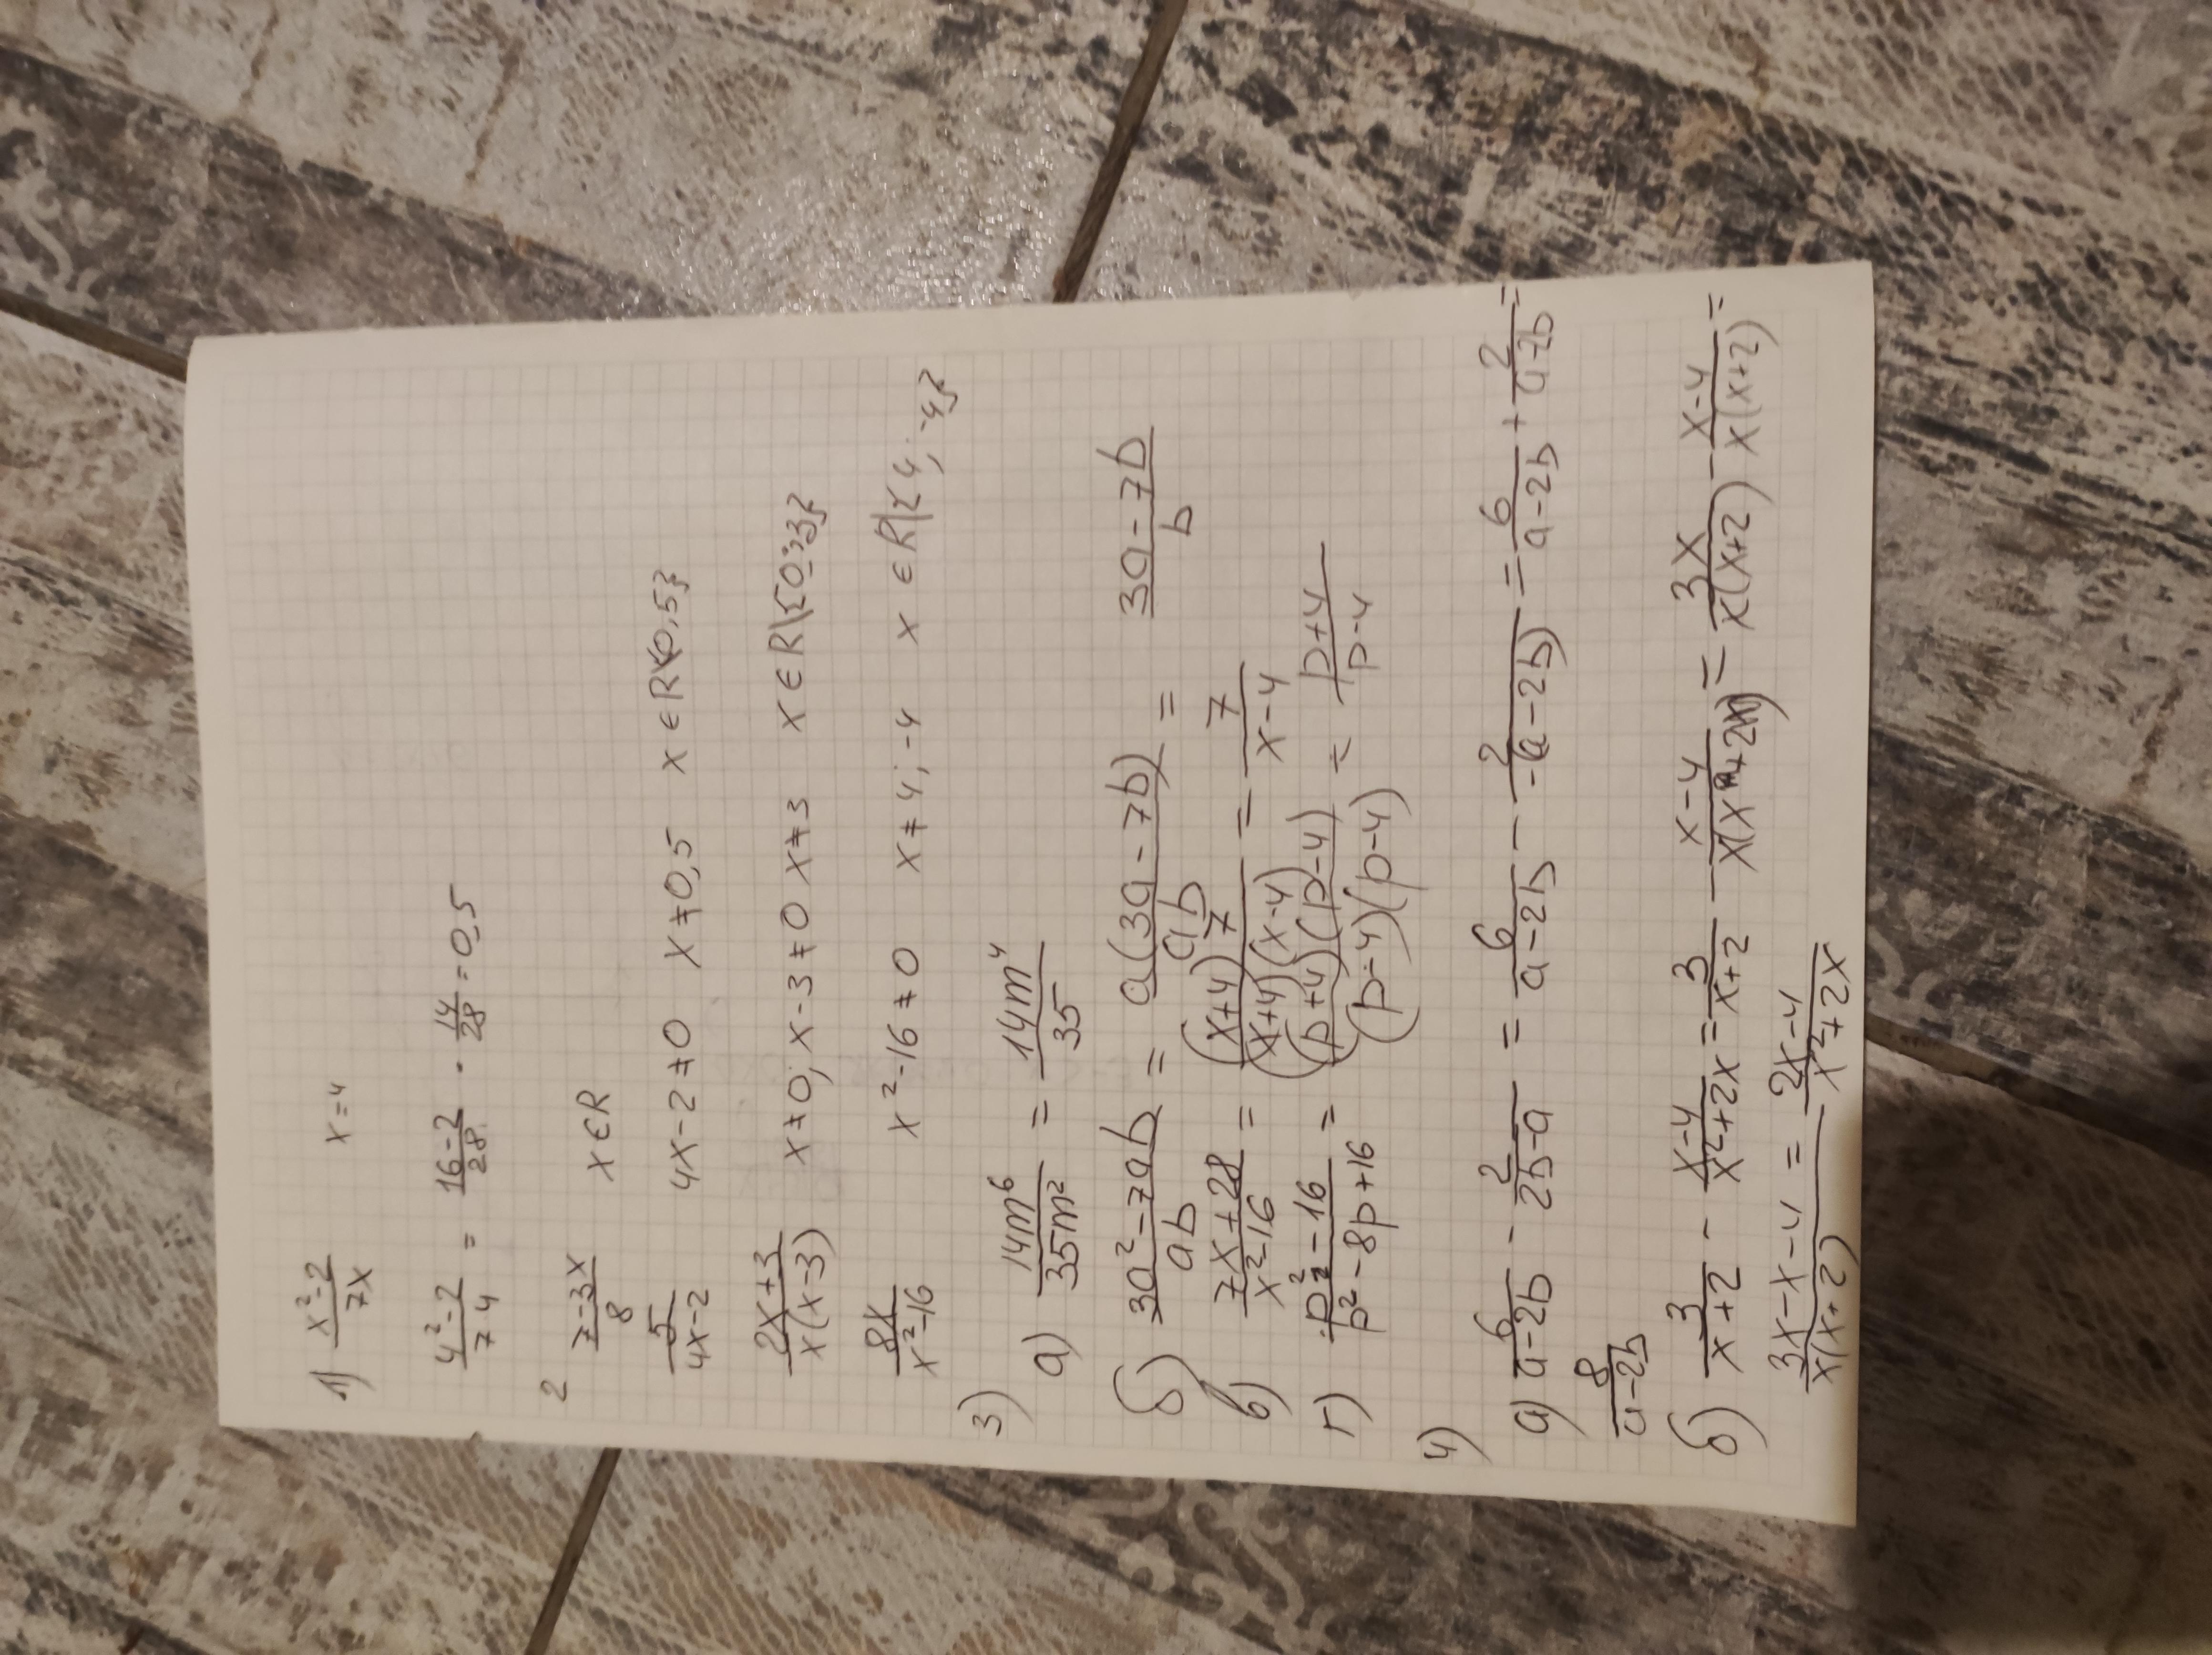 1) (x²-2)/(7x) x=4
(4²-2)/(7 4) = (16-2)/28 · 14/28 = 0,5
2 (7-3x)/8 x∈R
5/(4x-2) 4x-2≠0 x≠0,5 x∈R\{0,5}
(2x+3)/(x(x-3)) x≠0; x-3≠0 x≠3 x∈R\{0;3}
8x/(x²-16) x²-16≠0 x≠4;-4 x∈R\{4;-4}
3)
а) 14m⁶/35m² = 14m⁴/35
б) (3a²-7ab)/(ab) = a(3a-7b)/(ab) = (3a-7b)/b
в) (7x+28)/(x²-16) = (x+4)7/((x+4)(x-4)) = 7/(x-4)
г) (p²-16)/(p²-8p+16) = (p+4)(p-4)/((p-4)(p-4)) = (p+4)/(p-4)
4)
а) 6/(a-2b) - 2/(2b-a) = 6/(a-2b) - 2/(-(a-2b)) = 6/(a-2b) + 2/(a-2b) =
8/(a-2b)
б) 3/(x+2) - (x-4)/(x²+2x) = 3/(x+2) - (x-4)/(x(x+2)) = 3x/(x(x+2)) - (x-4)/(x(x+2)) =
(3x-x-4)/(x(x+2)) = (2x-4)/(x²+2x)